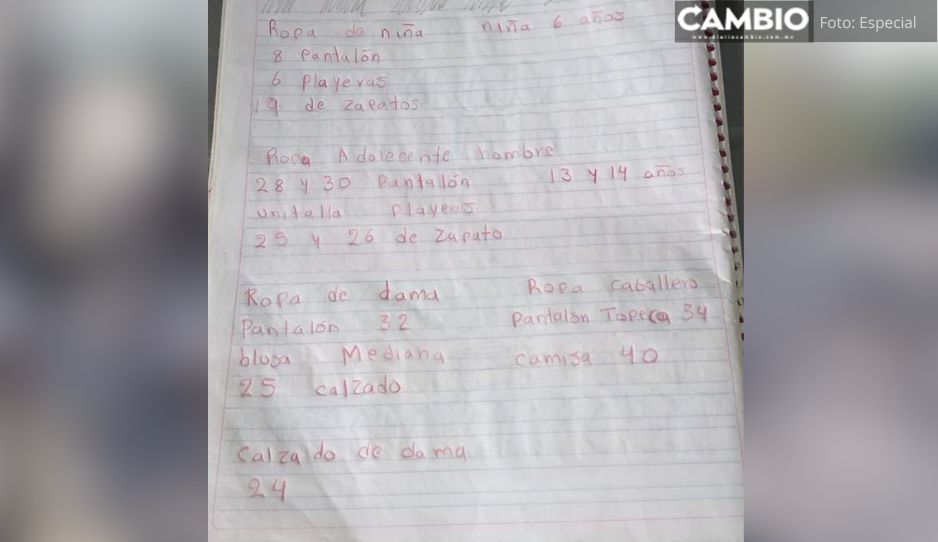 CAMBIO
www.diariocambio.com.mx
Foto: Especial
Ropa de niña niña 6 años
8 Pantalón
6 Playeras
19 de zapatos
Ropa Adolecente hombre
28 y 30 Pantalón 13 y 14 años
unitalla playeras
25 y 26 de zapato
Ropa de dama
Pantalón 32
blusa Mediana
25 calzado
Ropa caballero
Pantalón 34
camisa 40
Calzado de dama
24